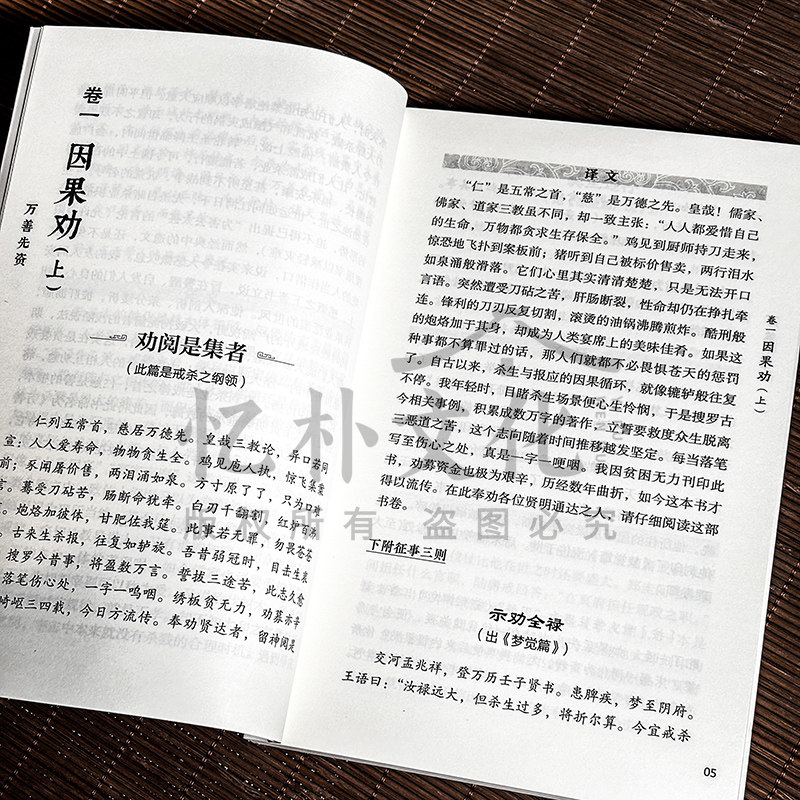 卷一 因果劝（上）
万善先资
劝阅是集者
（此篇是戒杀之纲领）
仁列五常首，慈居万德先。皇哉三教论，异口若同
宣：人人爱寿命，物物贪生全。鸡见庖人执，惊飞集案
前；豕闻屠价售，两泪涌如泉。方寸原了了，只为口难
言。蓦受刀砧苦，肠断命犹牵。白刃千翻割，红炉百沸
。炮烙加彼体，甘肥佐我筵。此事若无罪，勿畏苍苍
。古来生杀报，往复如轳旋。吾昔弱冠时，目击生哀
搜罗今昔事，将盈数万言。誓拔三途苦，此志久愈
落笔伤心处，一字一呜咽。绣板贫无力，劝募亦辛
崎岖三四载，今日方流传。奉劝贤达者，留神阅是
译文
“仁”是五常之首，“慈”是万德之先。皇哉！儒家、
佛家、道家三教虽不同，却一致主张：“人人都爱惜自己
的生命，万物都贪求生存保全。”鸡见到厨师持刀走来，
惊恐地飞扑到案板前；猪听到自己被标价售卖，两行泪水
如泉涌般滑落。它们心里其实清清楚楚，只是无法开口
言语。突然遭受刀砧之苦，肝肠断裂，性命却仍在挣扎牵
连。锋利的刀刃反复切割，滚烫的油锅沸腾煎炸。酷刑般
的炮烙加于其身，却成为人类宴席上的美味佳肴。如果这
种事都不算罪过的话，那人们就都不必畏惧苍天的惩罚
了。自古以来，杀生与报应的因果循环，就像辘轳般往复
不停。我年轻时，目睹杀生场景便心生怜悯，于是搜罗古
今相关事例，积累成数万字的著作，立誓要救度众生脱离
三恶道之苦，这个志向随着时间推移越发坚定。每当落笔
写至伤心之处，真是一字一哽咽。我因贫困无力刊印此
书，劝募资金也极为艰辛，历经数年曲折，如今这本书才
得以流传。在此奉劝各位贤明通达之人，请仔细阅读这部
书卷。
下附征事三则
示劝全禄
（出《梦觉篇》）
交河孟兆祥，登万历壬子贤书。患脾疾，梦至阴府。
王语曰：“汝禄远大，但杀生过多，将折尔算。今宜戒杀
卷一 因果劝（上）
05
忆朴文化
版权所有 盗图必究